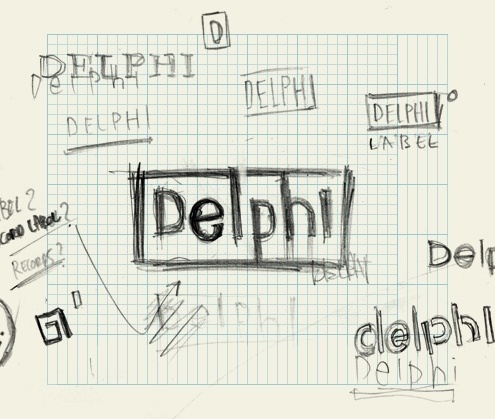 D
DELPHI
Delphi
DELPHI
DELPHI
DELPHI
LABEL
Delphi
LABEL?
RECORDS?
DELPHI
Delp
delphi
Delphi